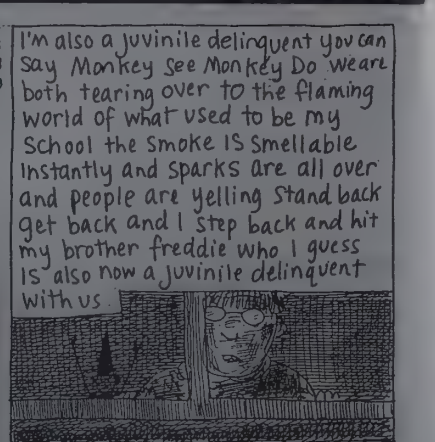 I'm also a juvinile delinquent you can
say Monkey see Monkey Do we are
both tearing over to the flaming
world of what used to be my
School the smoke IS Smellable
Instantly and sparks are all over
and people are yelling stand back
get back and I step back and hit
my brother freddie who I guess
IS also now a juvinile delinquent
with us.